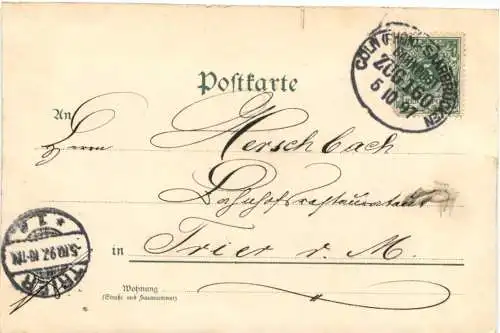 Postkarte
CÖLN
SAARBRÜCKEN
ZUG 160
5 10 97
An
Herrn Herschbach
Bahnhofsrestaurateur
in Trier a. M.
TRIER
5.10.97.
* 1 *
Wohnung
(Straße und Hausnummer)